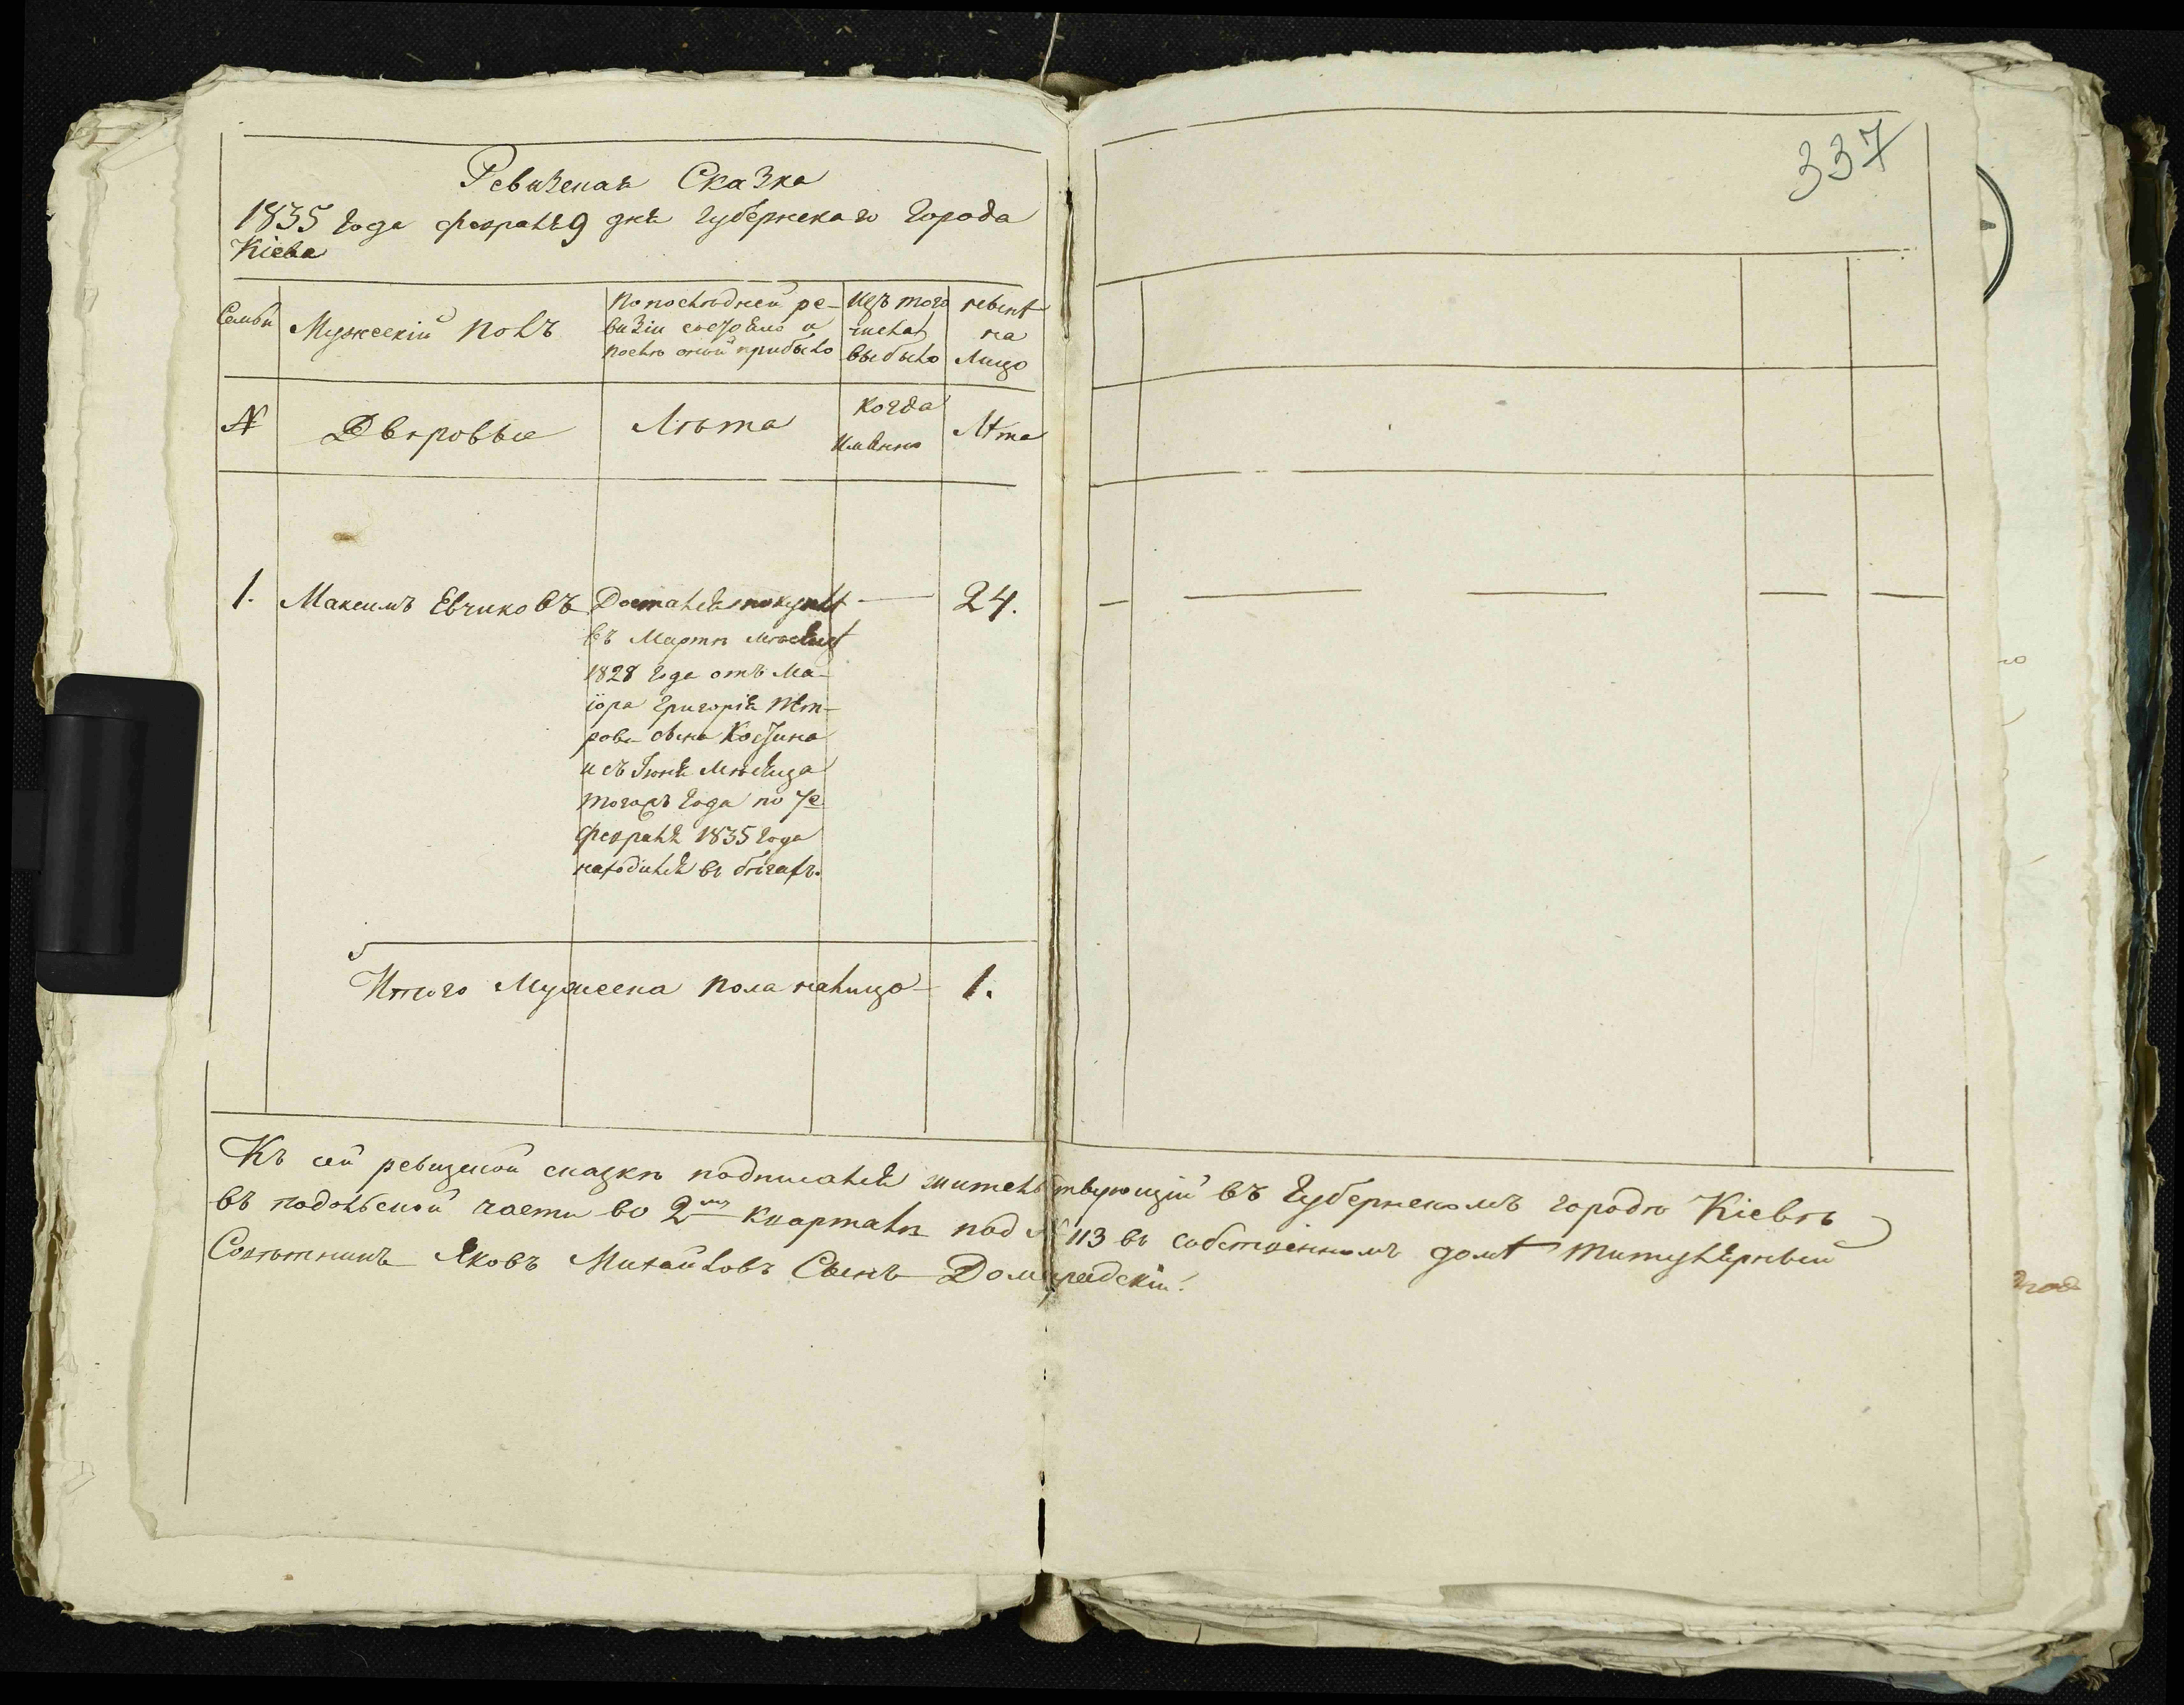 337
Ревизская Сказка
1835 года февраля 9 дня Губернскаго Города
Кіева
Семьи
Мужескій полъ
По последней ре-
визіи состояло и
после оной прибыло
Изъ того
числа
выбыло
ныне
на
лицо
№
Дворовые
Лѣта
когда
именно
Лѣта
1.
Максимъ Евчиковъ
24.
Достался покупкѣ
въ Мартѣ мѣсяцѣ
1828 года отъ Ма-
іора Григорія Пет-
рова сына Костина
и съ Іюня мѣсяца
тогожъ года по 7е
февраля 1835 года
находился въ бѣгахъ.
Итого мужеска пола налицо
1.
Къ сей ревизской сказкѣ подписался жительствующій въ Губернскомъ городѣ Кіевѣ
въ подольской части во 2мъ кварталѣ под № 113 въ собственномъ домѣ Титулярный
Совѣтникъ Яковъ Михайловъ Сынъ